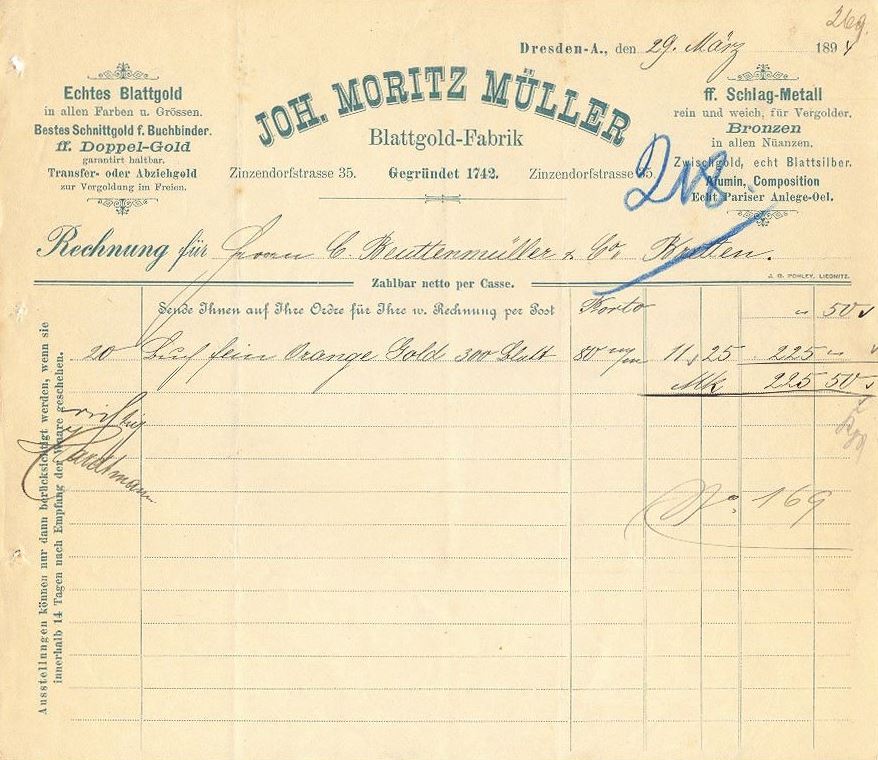 269.
Dresden-A., den 29. März 1894
Echtes Blattgold
in allen Farben u. Grössen.
Bestes Schnittgold f. Buchbinder.
ff. Doppel-Gold
garantirt haltbar.
Transfer- oder Abziehgold
zur Vergoldung im Freien.
JOH. MORITZ MÜLLER
Blattgold-Fabrik
Zinzendorfstrasse 35. Gegründet 1742. Zinzendorfstrasse 35.
ff. Schlag-Metall
rein und weich, für Vergolder.
Bronzen
in allen Nüanzen.
Zwischgold, echt Blattsilber.
Alumin, Composition
Echt Pariser Anlege-Oel.
218.
Rechnung für Herrn C. Beuttenmüller & Co. Bretten.
Zahlbar netto per Casse.
J. G. POHLEY, LIEGNITZ.
Sende Ihnen auf Ihre Ordre für Ihre w. Rechnung per Post Porto " 50
20 Buch fein Orange Gold 300 Blatt 80 m/m 11 25 225 "
Mk 225 50
richtig
Hardtmann
No. 169
Ausstellungen können nur dann berücksichtigt werden, wenn sie
innerhalb 14 Tagen nach Empfang der Waare geschehen.